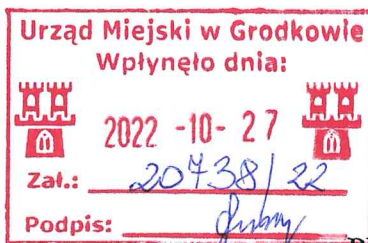 Urząd Miejski w Grodkowie
Wpłynęło dnia:
2022 -10- 27
Zał.: 20738/22
Podpis: